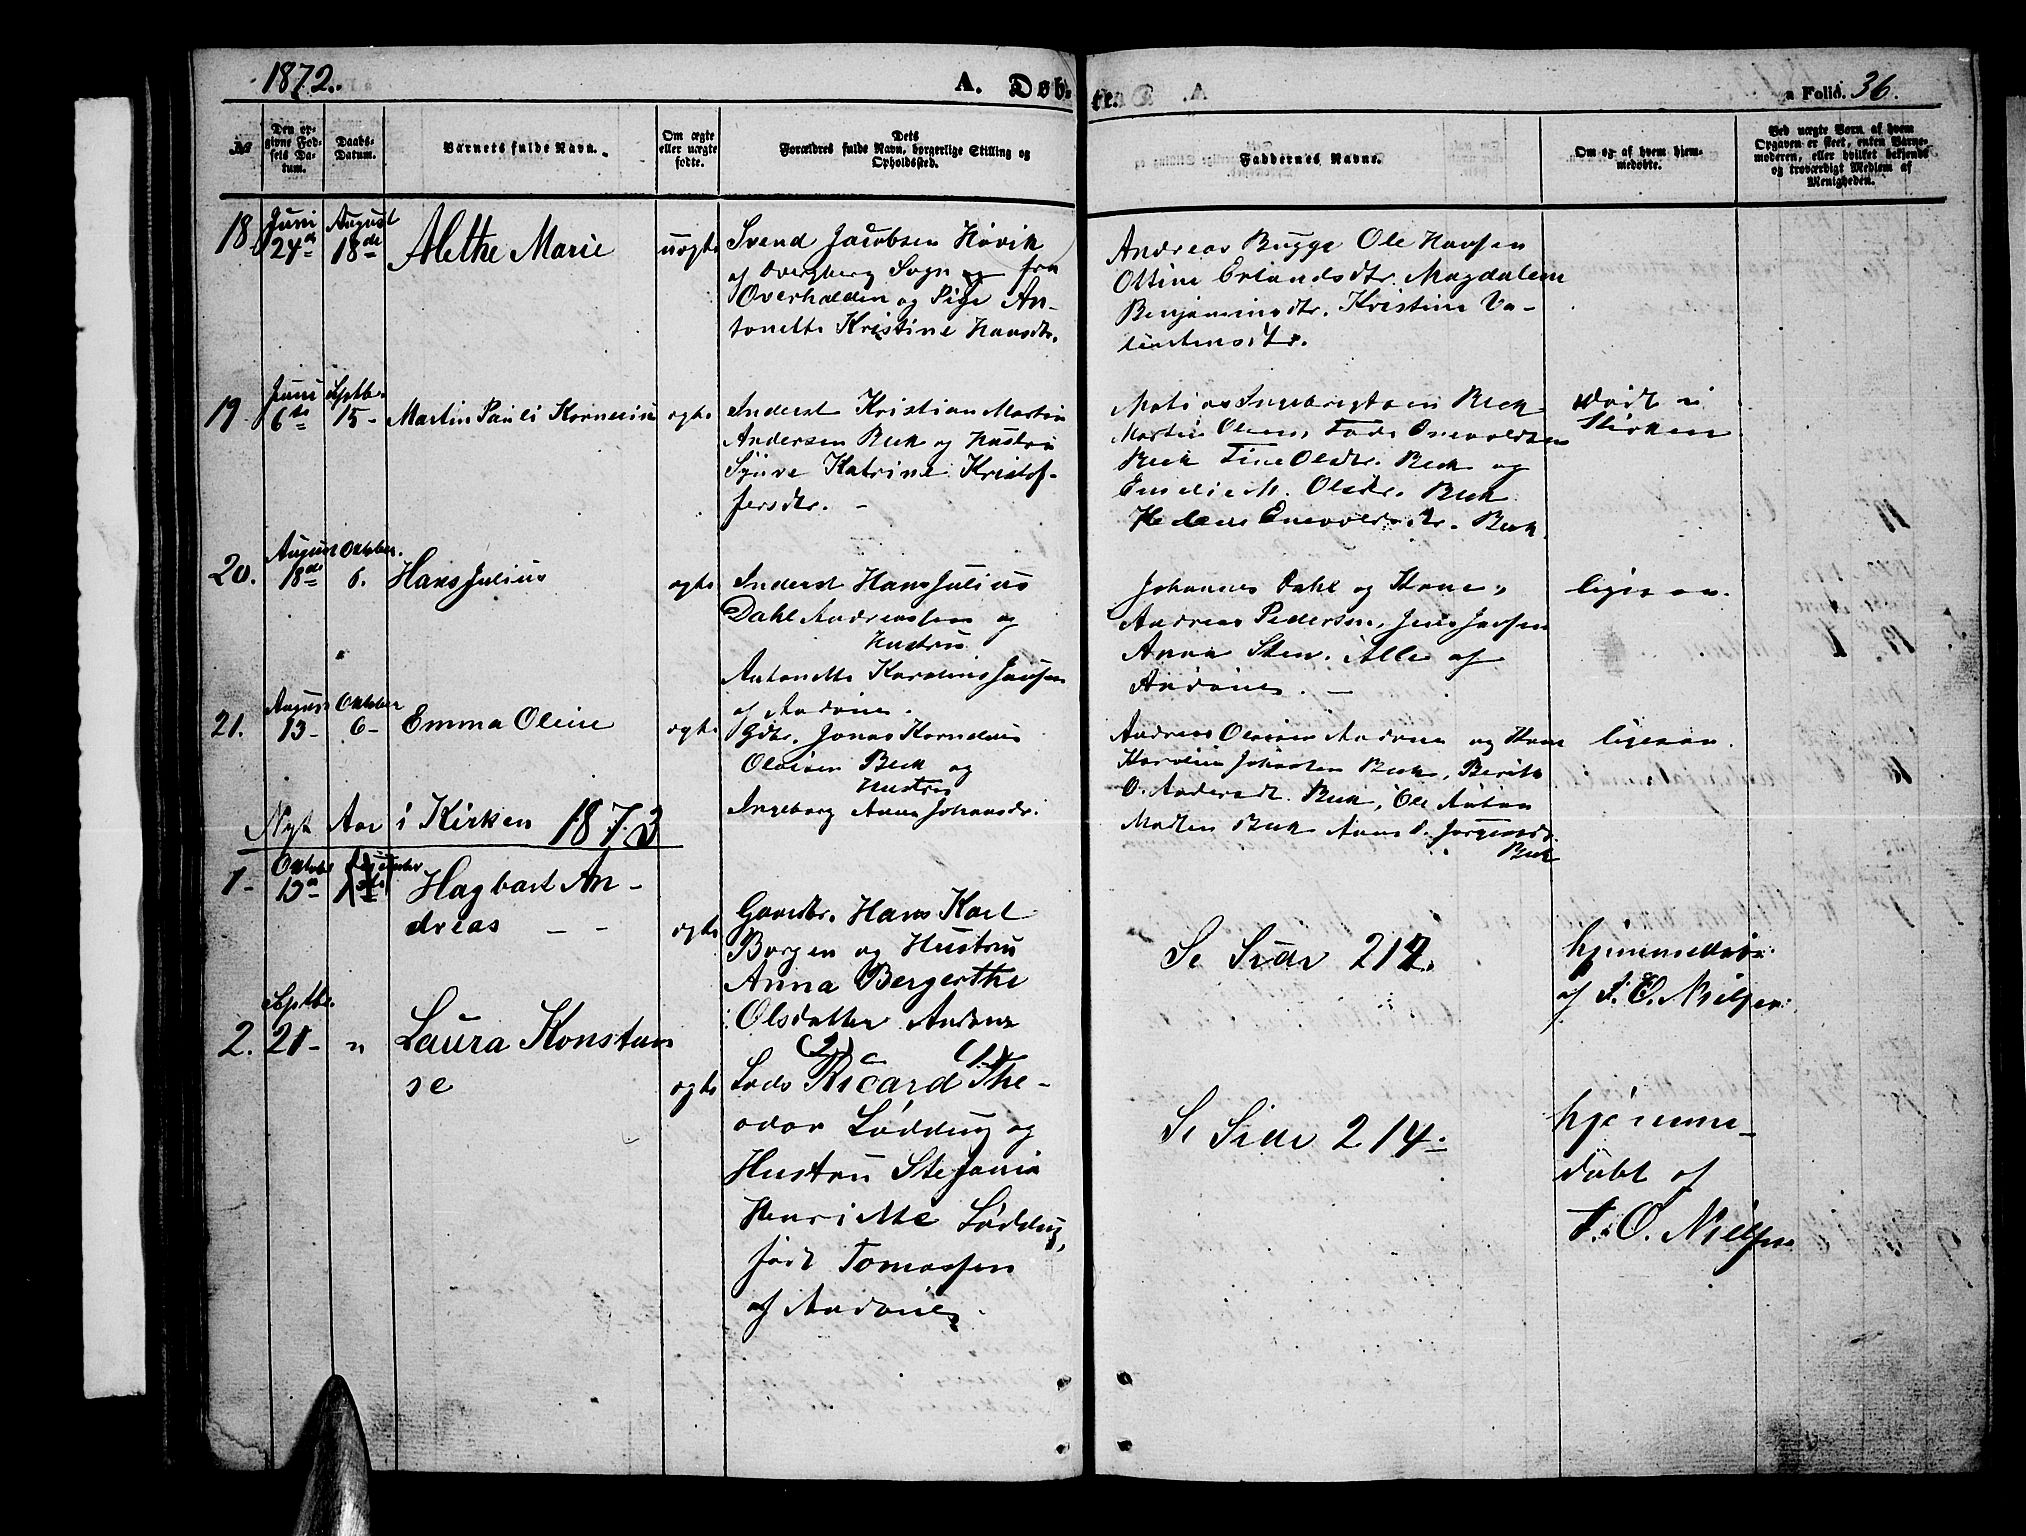 1872.
A. Døb-
te.
a Folio. 36.
№
Den er-
givne Fød-
sels Da-
tum.
Daabs-
Datum.
Barnets fulde Navn.
Om ægte
eller uægte
fødte.
Dets
Forældres fulde Navn, borgerlige Stilling og
Opholdssted.
Faddernes Navne.
Om og af hvem hjem-
medøbte.
Ved uægte Børn af hvem
Opgaven er skeet, enten Barne-
moderen, eller hvilket bekjendt
og troværdigt Medlem af
Menigheden.
18.
Juni
24de
August
18de
Alethe Marie
uægte
Svend Jacobsen Høvik
af Overgberg Sogn og fra
Overhalden og Pige An-
tonette Kristine Hansdtr.
Andreas Bugge Ole Hansen
Ottine Erlandsdtr. Magdalene
Benjaminsdtr. Kristine Va-
lentinsdtr.
19.
Juni
6te
Septbr.
15-
Martin Pauli Kornelius
ægte
Inderst Kristian Martin
Andersen Bek og Hustru
Synve Katrine Kristof-
fersdtr. -
Matias Ingebrigtsen Bek
Martin Olsen, Enevoldsen
Bek Tine Olsdtr. Bek og
Emelie M. Olsdtr. Bek
Enevoldsdtr. Bek
døbt i
Kirken
20.
August
18de
Oktober.
6.
Hans Julius
ægte
Inderst Hans Julius
Dahl Andreassen og
Hustru
Antonette Karoline Jansen
af Andønes.
Johannes Dahl og Kone,
Andreas Pedersen, Jens Jansen
Anna Sten. Alle af
Andønes. -
ligesaa.
21.
August
13-
Oktober
6-
Emma Oleine
ægte
Gdbr. Jonas Kornelius
Olaisen Bek og
Hustru
Ingeborg Anna Johansdr.
Andreas Olaisen Andønes og Kone
Johansen Bek, Berith
O. Andersdt. Bek, Ole Anton
Madsen Bek Anna D. Jørgensdr.
Bek
ligesaa.
Nyt Aar i Kirken 1873
1-
Oktober
13de
December
Hagbart An-
dreas - -
ægte
Gaardbr. Hans Karl
Borgen og Hustru
Anna Bergerthe
Olsdatter Andønes
Se Side 212.
hjemmedøbt
af J. O. Nielsen.
2.
Septbr.
21-
"
Laura Konstan
se
ægte
(2) (1)
Lods Ricard The-
odor Lødding og
Hustru Stefania
Henriette Lødding,
født Tomassen
af Andønes.
Se Side 214.
hjemme-
døbt af
J. O. Nielsen